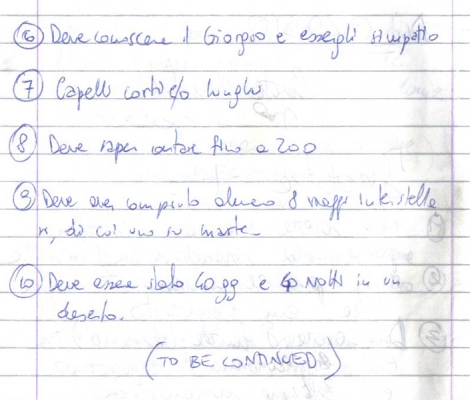 ⑥ Deve conoscere il Giorgio e essergli simpatico
⑦ Capelli corti e/o lunghi
⑧ Deve saper contare fino a 200
⑨ Deve aver compiuto almeno 8 viaggi interstella
ri, di cui uno su marte
⑩ Deve essere stato 40 gg e 40 Notti in un
deserto.
(TO BE CONTINUED)